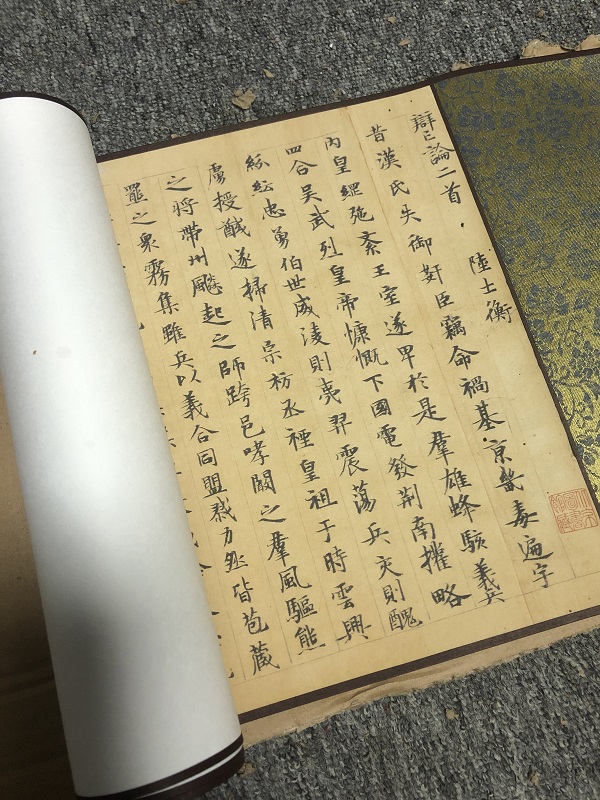 辯亡論二首　陸士衡
昔漢氏失御奸臣竊命禍基京畿毒遍宇
內皇綱弛紊王室遂卑於是羣雄蜂駭義兵
四合吳武烈皇帝慷慨下國電發荊南權略
紛紜忠勇伯世威淩則夷羿震蕩兵交則醜
虜授馘遂掃清宗祊烝禋皇祖于時雲興
之將帶州飈起之師跨邑哮闞之羣風驅熊
羆之衆霧集雖兵以義合同盟戮力然皆苞藏